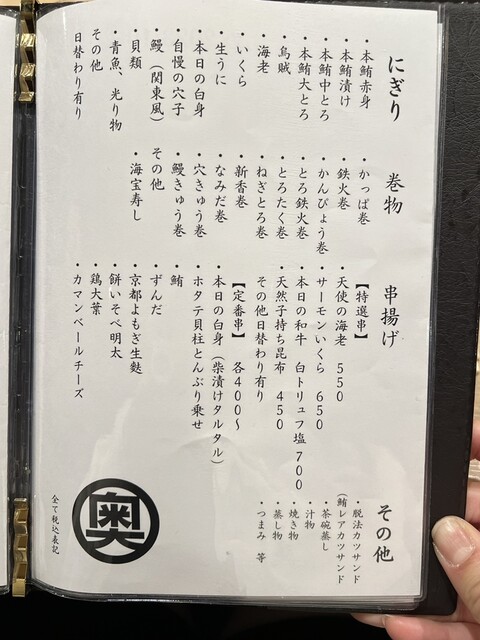 にぎり
・本鮪赤身
・本鮪漬け
・本鮪中とろ
・本鮪大とろ
・烏賊
・海老
・いくら
・生うに
・本日の白身
・自慢の穴子
・鰻（関東風）
・貝類
・青魚、光り物
その他
日替わり有り
巻物
・かっぱ巻
・鉄火巻
・かんぴょう巻
・とろ鉄火巻
・とろたく巻
・ねぎとろ巻
・新香巻
・なみだ巻
・穴きゅう巻
・鰻きゅう巻
その他
・海宝寿し
串揚げ
【特選串】
・天使の海老 550
・サーモンいくら 650
・本日の和牛 白トリュフ塩 700
・天然子持ち昆布 450
その他日替わり有り
【定番串】 各400〜
・本日の白身（柴漬けタルタル）
・ホタテ貝柱とんぶり乗せ
・鮪
・ずんだ
・京都よもぎ生麩
・餅いそべ明太
・鶏大葉
・カマンベールチーズ
その他
・脱法カツサンド
（鮪レアカツサンド）
・茶碗蒸し
・汁物
・焼き物
・蒸し物
・つまみ 等
奥
全て税込表記